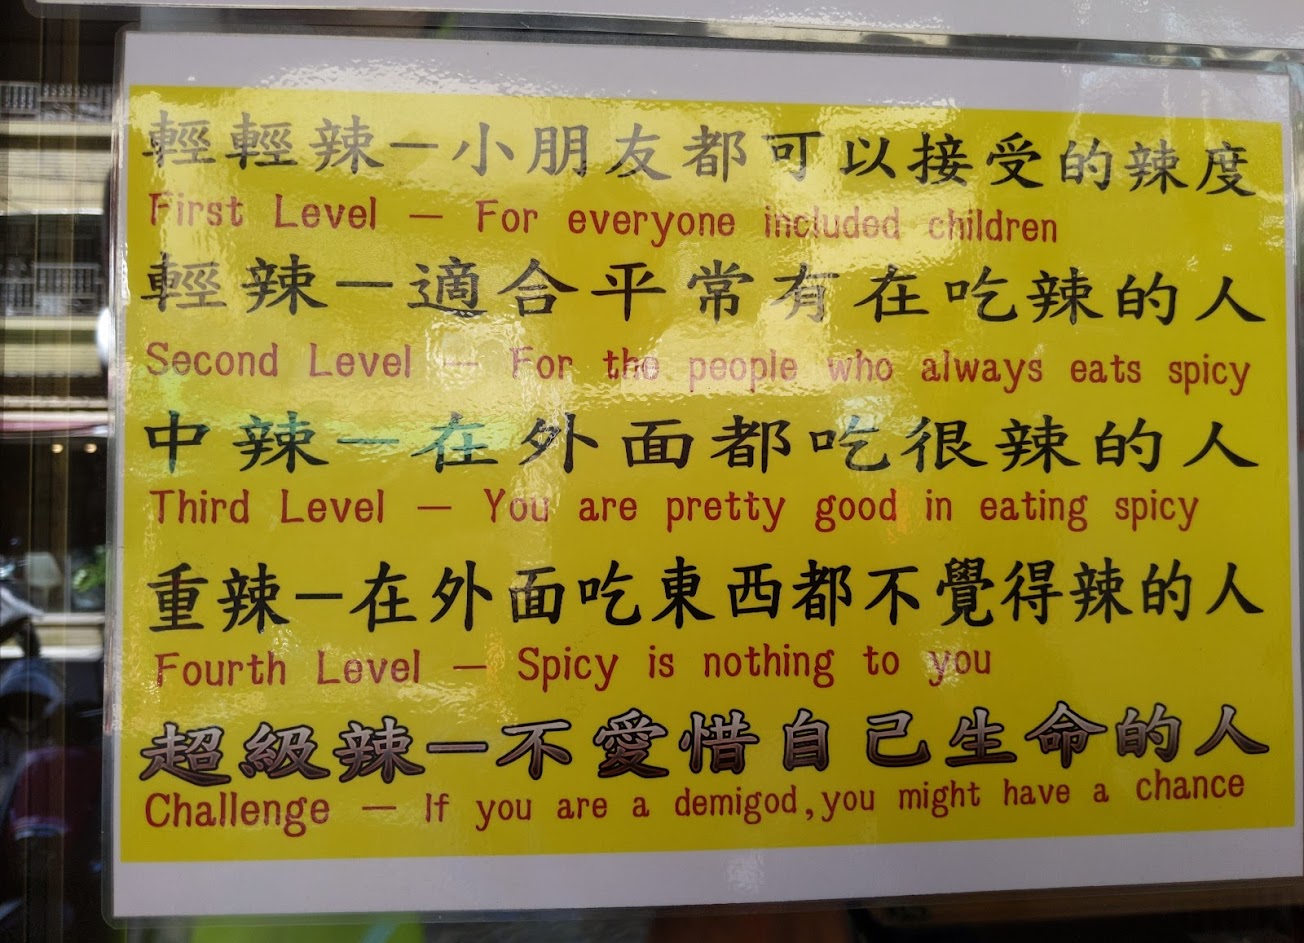 輕輕辣－小朋友都可以接受的辣度
First Level － For everyone included children
輕辣－適合平常有在吃辣的人
Second Level － For the people who always eats spicy
中辣－在外面都吃很辣的人
Third Level － You are pretty good in eating spicy
重辣－在外面吃東西都不覺得辣的人
Fourth Level － Spicy is nothing to you
超級辣－不愛惜自己生命的人
Challenge － If you are a demigod,you might have a chance